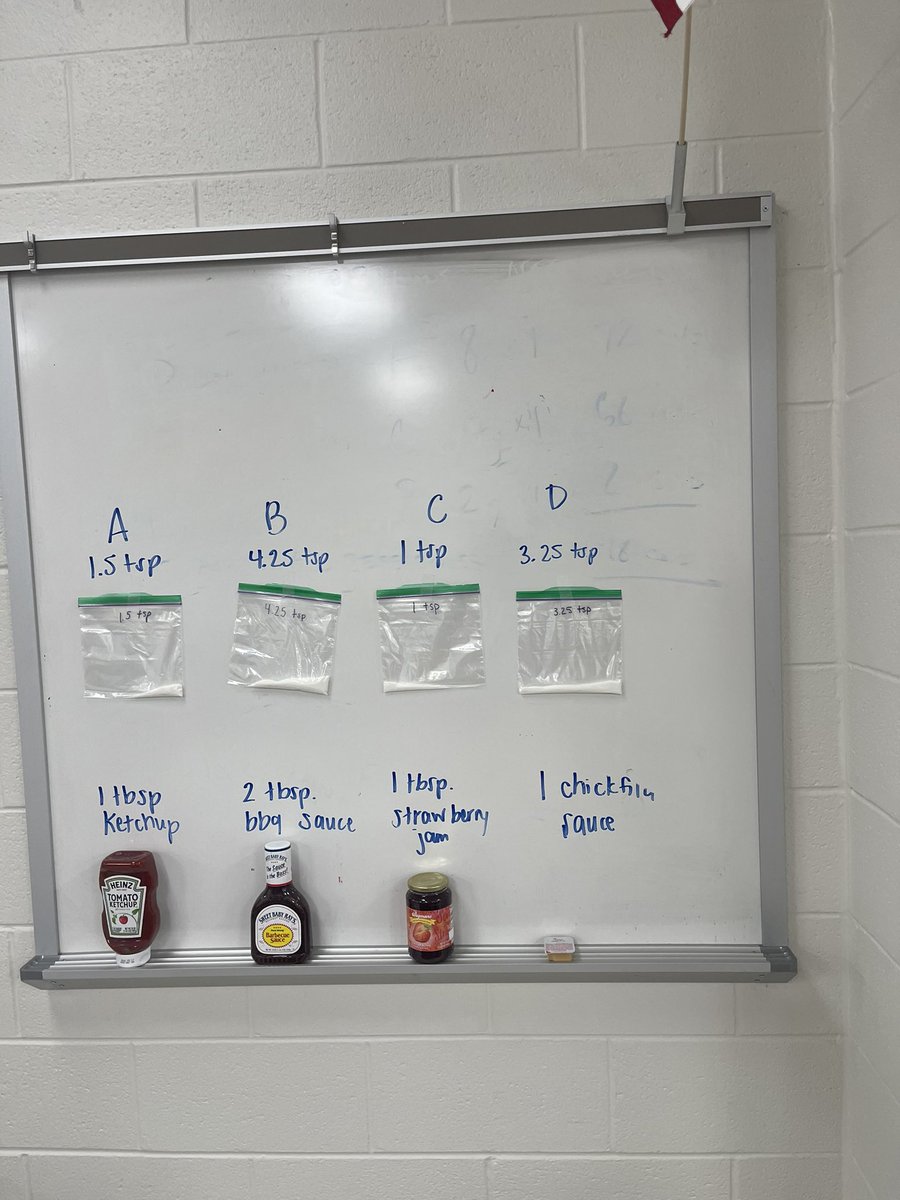 A
1.5 tsp
B
4.25 tsp
C
1 tsp
D
3.25 tsp
1.5 tsp
4.25 tsp
1 tsp
3.25 tsp
1 tbsp
Ketchup
2 tbsp.
bbq sauce
1 tbsp.
strawberry
jam
1 chickfila
sauce
HEINZ
TOMATO
KETCHUP
SWEET BABY RAY'S
Barbecue
Sauce